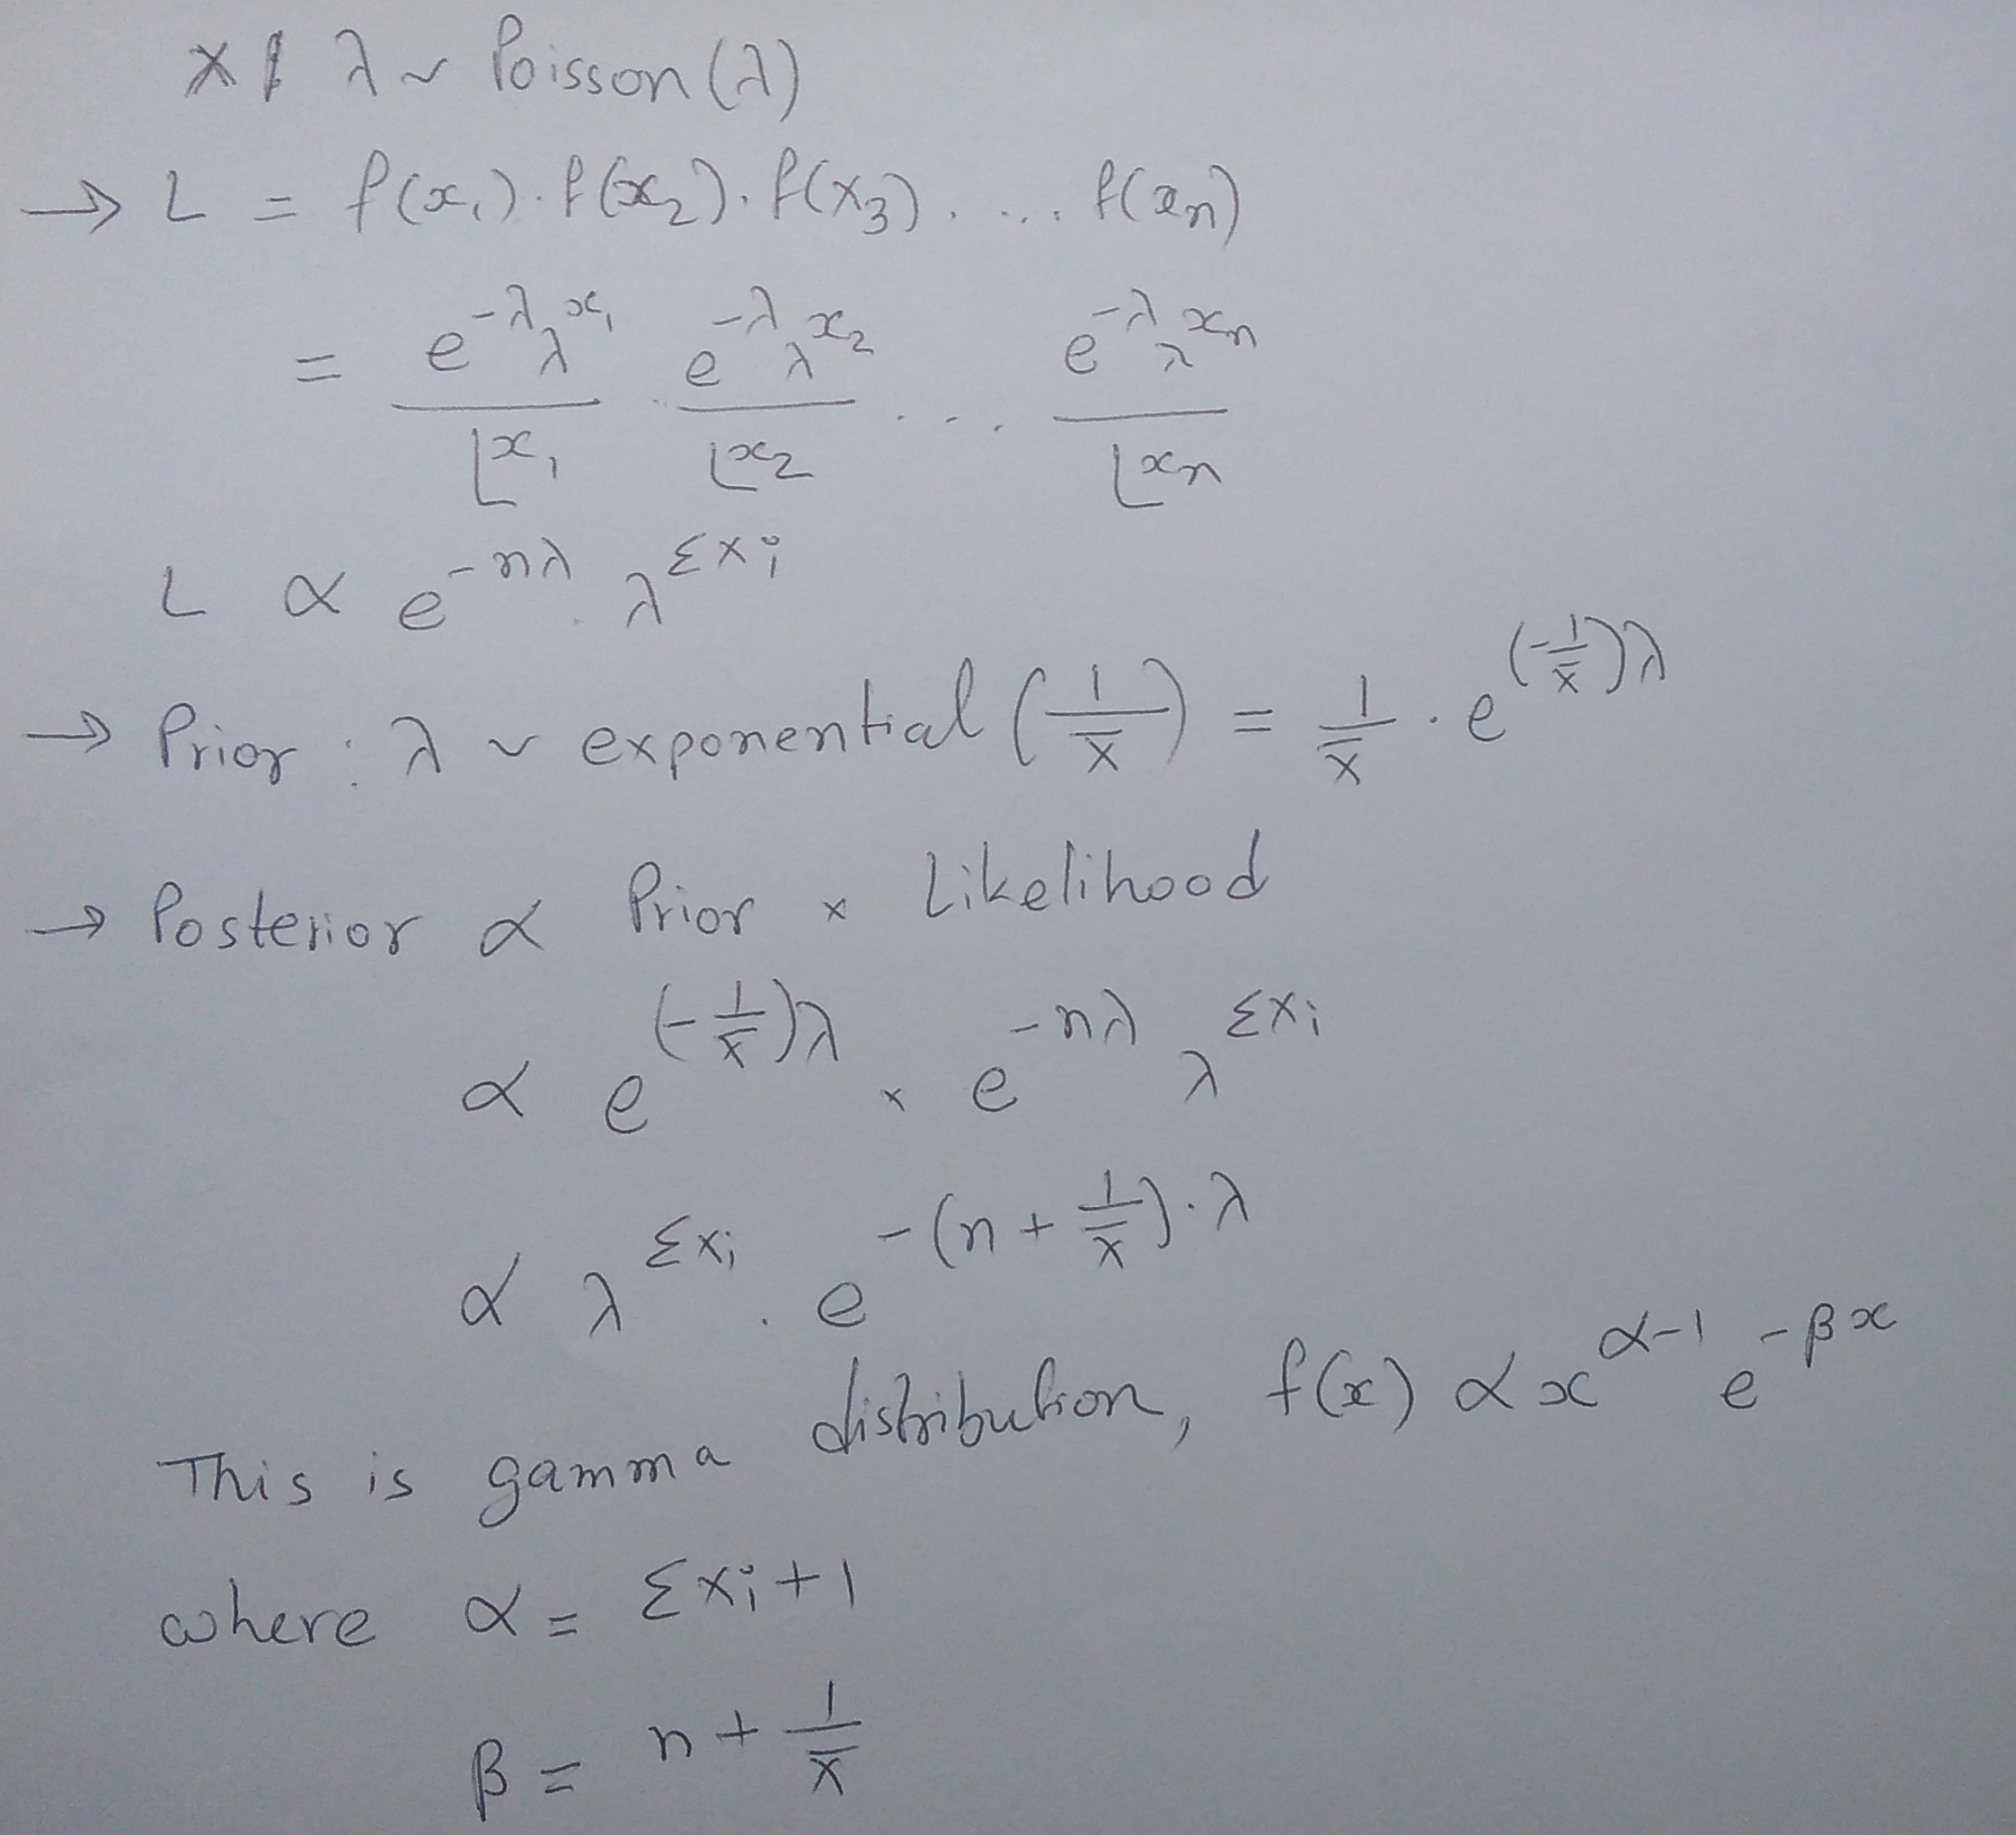 X | λ ~ Poisson(λ)
→ L = f(x₁) · f(x₂) · f(x₃) . .... f(xₙ)
= e^{-λ} λ^{x₁} / ⌊x₁ · e^{-λ} λ^{x₂} / ⌊x₂ .... e^{-λ} λ^{xₙ} / ⌊xₙ
L ∝ e^{-nλ} . λ^{Σxᵢ}
→ Prior : λ ~ exponential (1/x̄) = 1/x̄ · e^{(-1/x̄)λ}
→ Posterior ∝ Prior × Likelihood
∝ e^{(-1/x̄)λ} × e^{-nλ} λ^{Σxᵢ}
∝ λ^{Σxᵢ} . e^{-(n + 1/x̄)·λ}
This is gamma distribution, f(x) ∝ x^{α-1} e^{-βx}
where α = Σxᵢ+1
β = n + 1/x̄